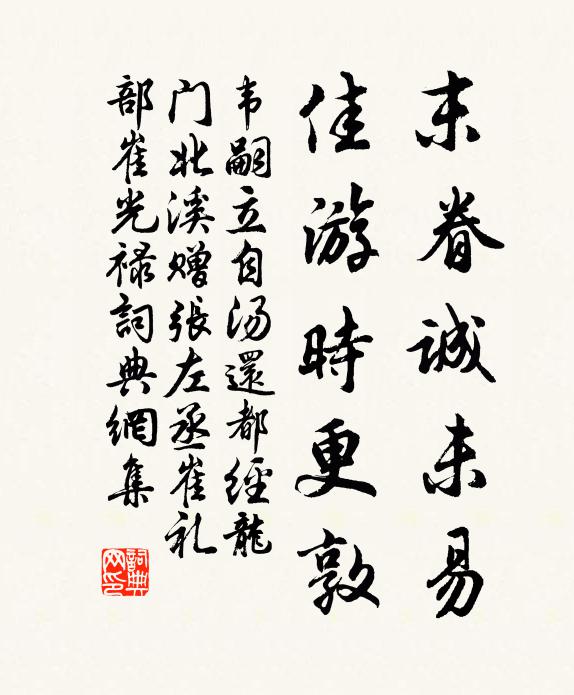 末眷誠未易
佳游時更敦
韦嗣立自汤還都經龍
门北溪赠張左丞崔礼
部崔光禄詞典網集
詞典
网印